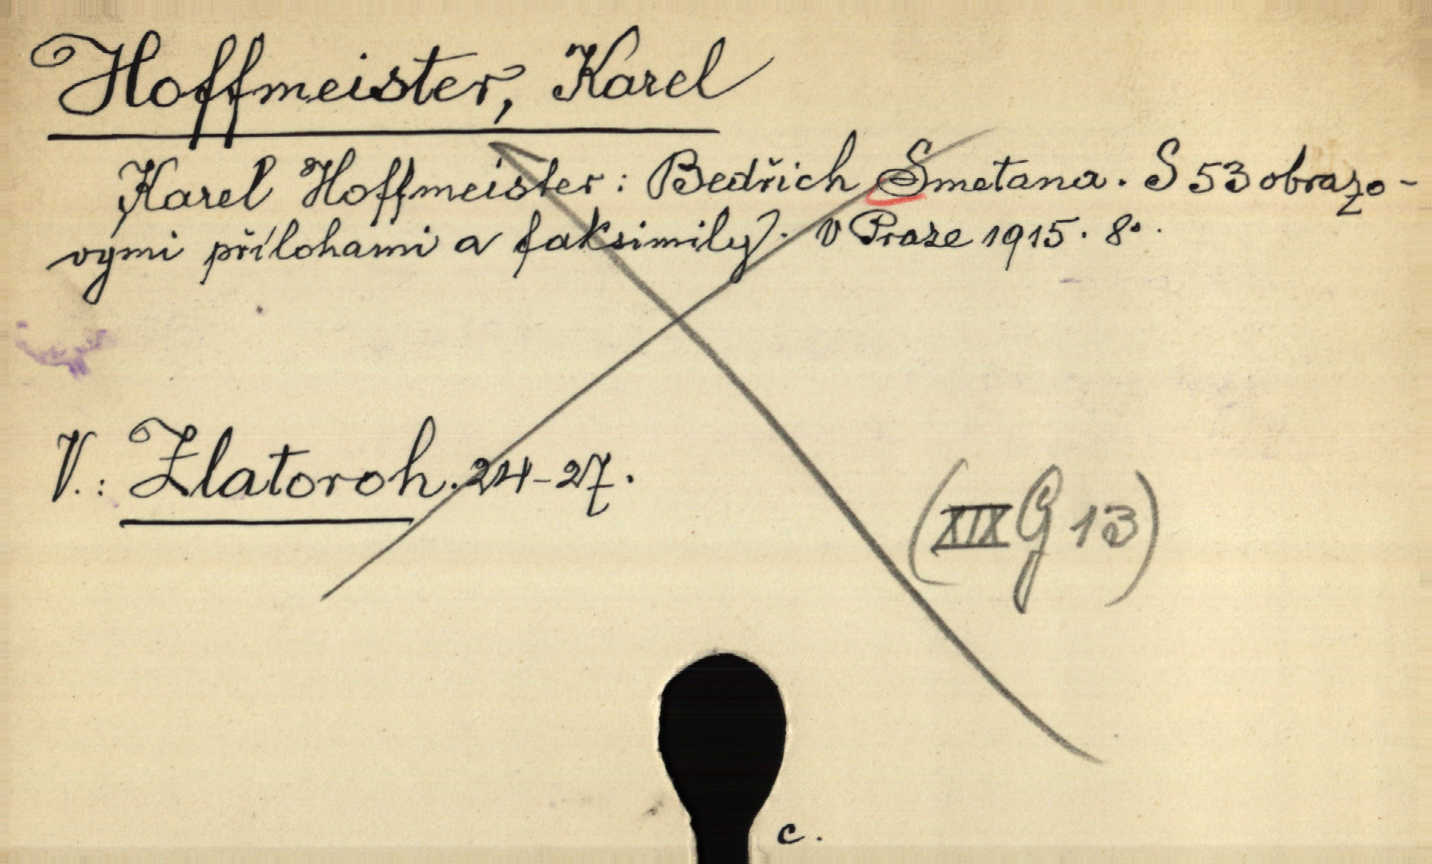 Hoffmeister, Karel
Karel Hoffmeister: Bedřich Smetana. S 53 obrazo-
vými přílohami a faksimily. V Praze 1915. 8°.
V.: Zlatoroh. 24-27.
(XIX G 13)
c.